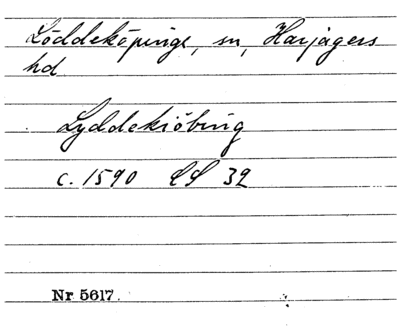 Löddeköpinge, sn, Harjagers
hd
Lyddekiöbing
c. 1590 LS 39
Nr 5617.